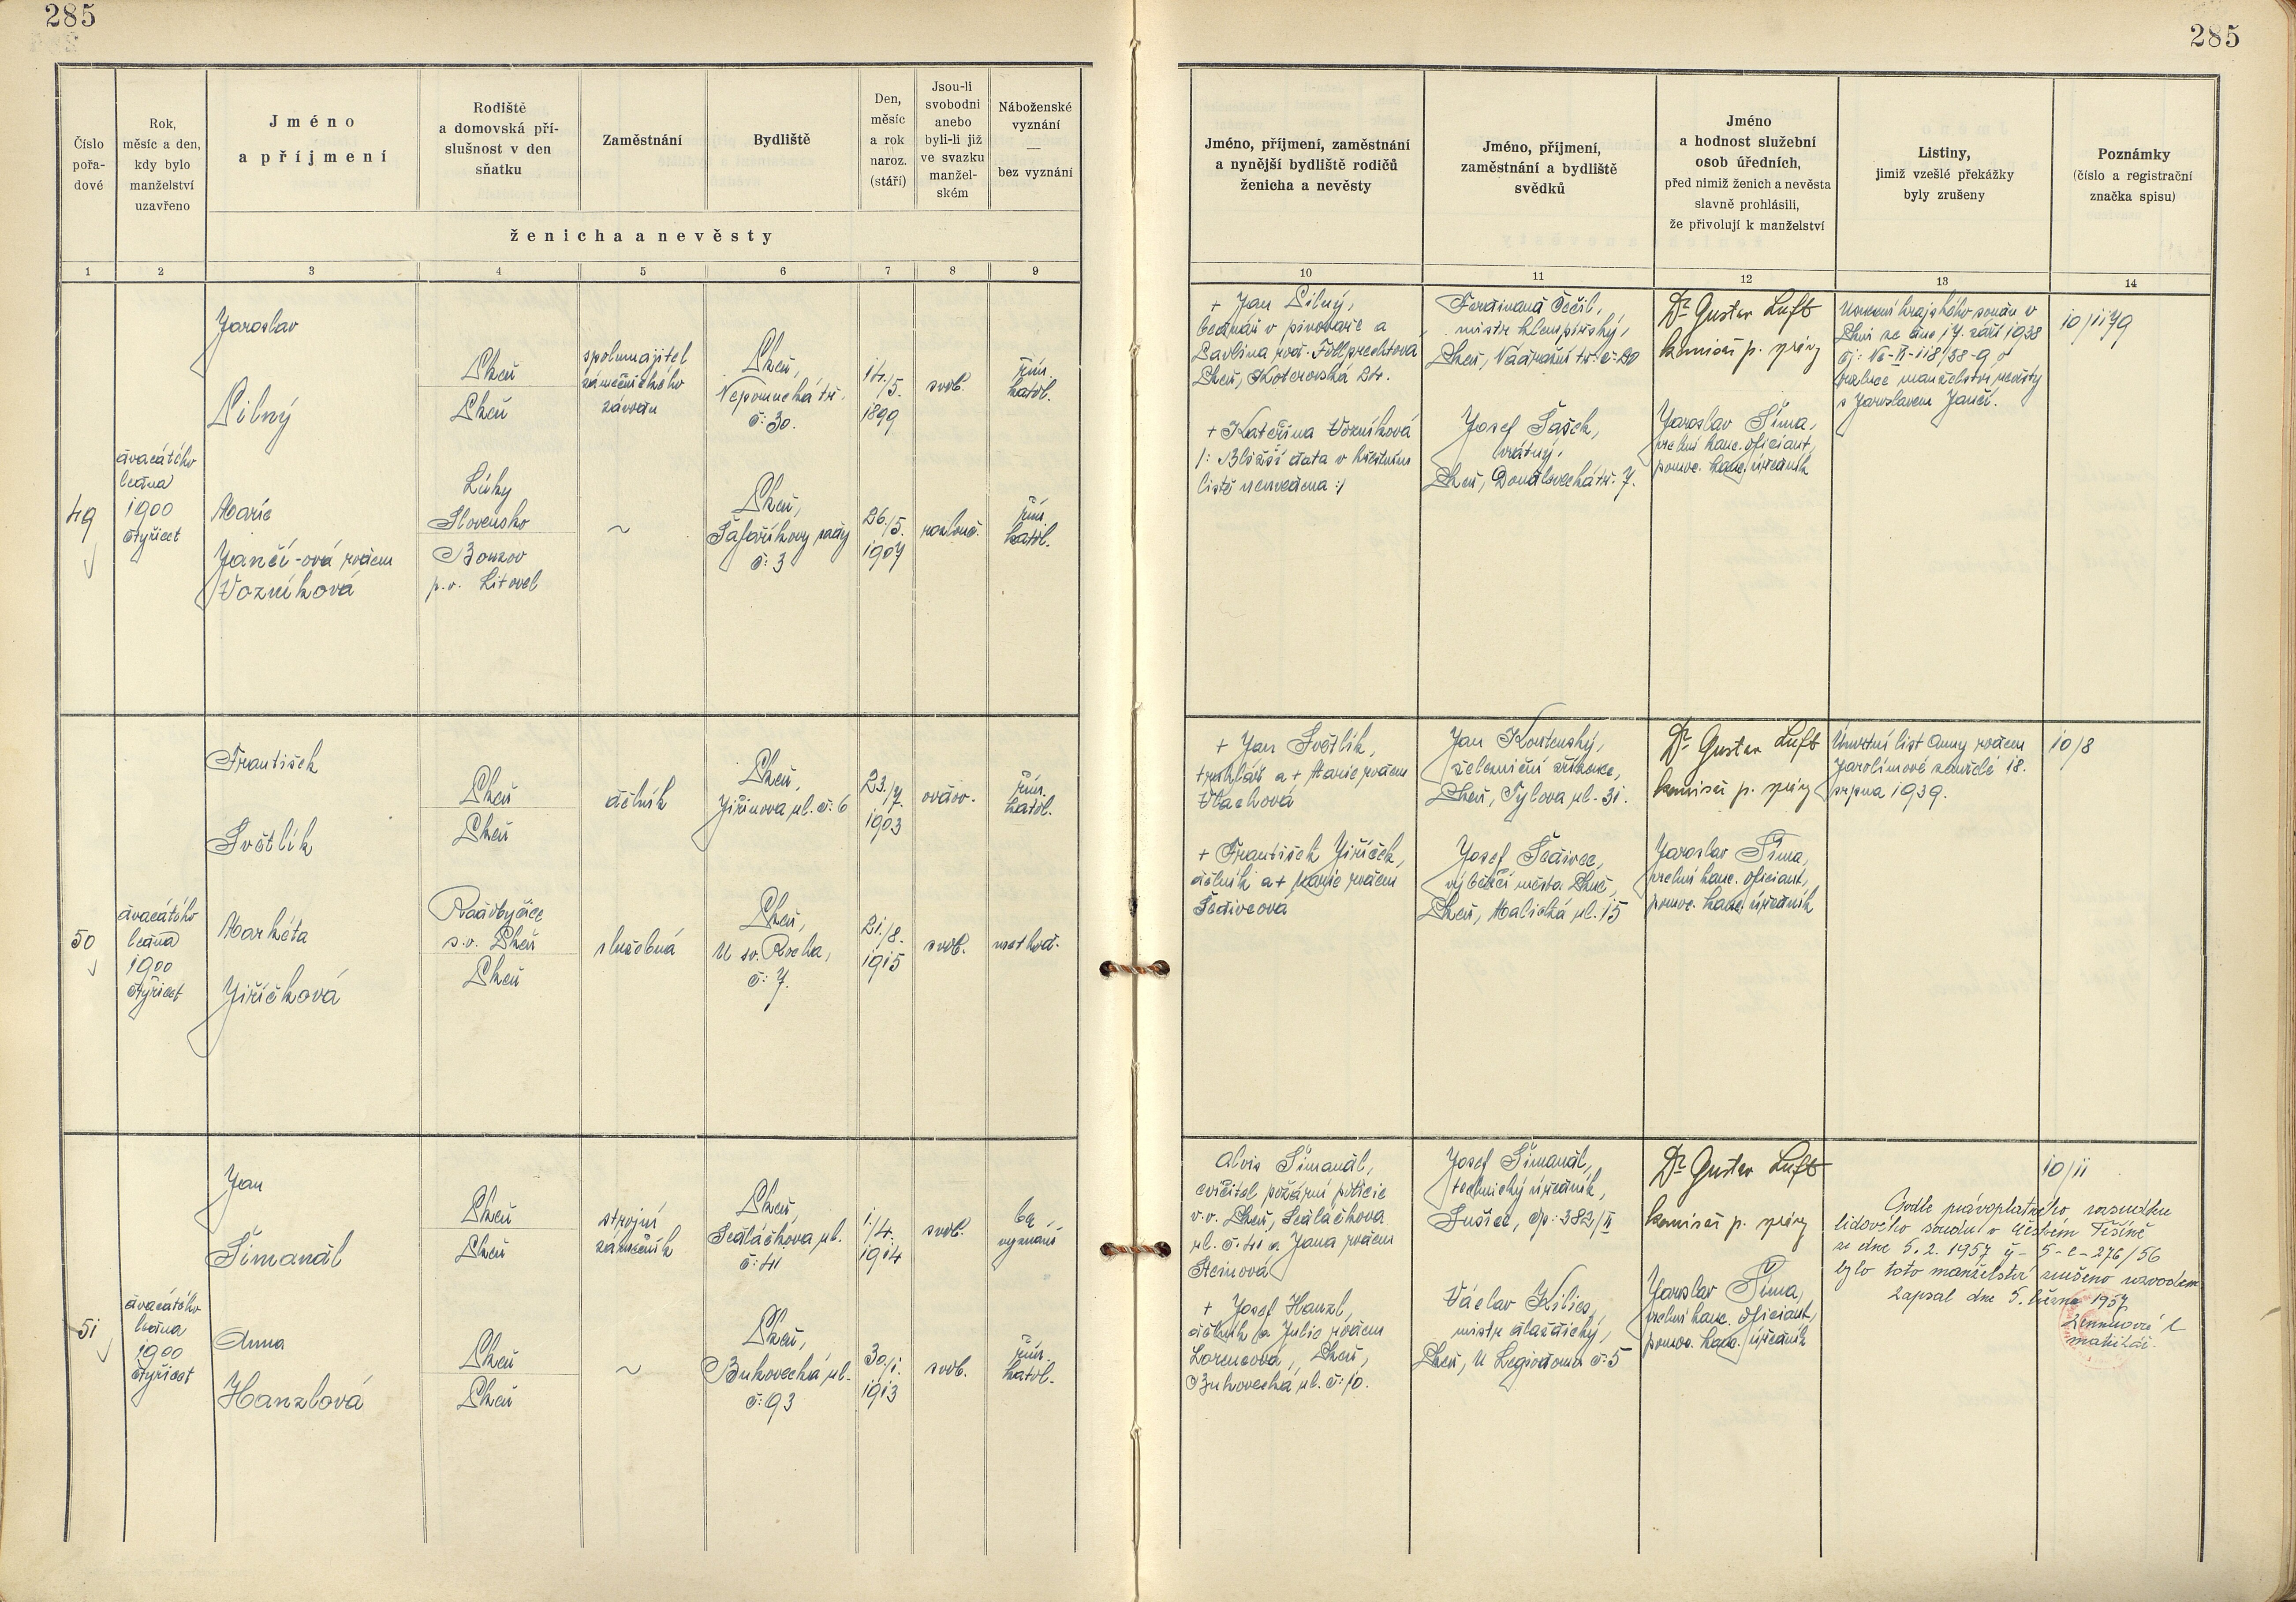 285
285
Číslo pořa-dové
Rok, měsíc a den, kdy bylo manželství uzavřeno
Jméno a příjmení
Rodiště a domovská pří-slušnost v den sňatku
Zaměstnání
Bydliště
Den, měsíc a rok naroz. (stáří)
Jsou-li svobodni anebo byli-li již ve svazku manžel-ském
Náboženské vyznání — bez vyznání
ženicha a nevěsty
Jméno, příjmení, zaměstnání a nynější bydliště rodičů ženicha a nevěsty
Jméno, příjmení, zaměstnání a bydliště svědků
Jméno a hodnost služební osob úředních, před nimiž ženich a nevěsta slavně prohlásili, že přivolují k manželství
Listiny, jimiž vzešlé překážky byly zrušeny
Poznámky (číslo a registrační značka spisu)
1 2 3 4 5 6 7 8 9 10 11 12 13 14
49
dvacátého
ledna
1900
čtyřicet
Jaroslav
Pilný
Plzeň
Plzeň
spolumajitel
zámečnického
závodu
Plzeň,
Nepomucká tř.
č: 30.
14./5.
1899
svob.
řím.
katol.
Marie
Jančí-ová rodem
Vozníková
Lúky
Slovensko
Bouzov
p.o. Litovel
~
Plzeň,
Šafaříkovy sady
č: 3
26./5.
1907
rozlouč.
řím.
katol.
+ Jan Pilný,
bednář v pivovaře a
Pavlina roz. Follprechtova
Plzeň, Koterovská 24.
+ Kateřina Vozníková
/: Bližší data v křestním
listě neuvedena :/
Ferdinand Čečil,
mistr klempířský,
Plzeň, Nádražní tř. č. 20
Josef Šašek,
vrátný,
Plzeň, Doudlevecká tř. 7.
Dr Gustav Luft
komisař p. správy
Jaroslav Šíma,
vrchní kanc. oficiant,
pomoc. kanc. úředník
Usnesení krajského soudu v
Plzni ze dne 17. září 1938
čj: Nc-II-118/38-9 o
rozluce manželství nevěsty
s Jaroslavem Jančí.
10/1179
50
dvacátého
ledna
1900
čtyřicet
František
Světlík
Plzeň
Plzeň
dělník
Plzeň,
Jiřinova ul. č. 6
23./7.
1903
ovdov.
řím.
katol.
Markéta
Jiříčková
Radobyčice
s.o. Plzeň
Plzeň
služebná
Plzeň,
U sv. Rocha,
č: 7.
21./8.
1915
svob.
methód.
+ Jan Světlík,
truhlář a + Marie rodem
Vlachová
+ František Jiříček,
dělník a + Marie rodem
Šedivcová
Jan Kostenský,
železniční zřízenec,
Plzeň, Tylova ul. 31.
Josef Šedivec,
výběrčí města Plzně,
Plzeň, Malická ul. 15
Dr Gustav Luft
komisař p. správy
Jaroslav Šíma,
vrchní kanc. oficiant,
pomoc. kanc. úředník
Úmrtní list Anny rodem
Jarolímové zemřelé 18.
srpna 1939.
10/8
51
dvacátého
ledna
1900
čtyřicet
Jan
Šimanál
Plzeň
Plzeň
strojní
zámečník
Plzeň,
Sedláčkova ul.
č: 41
1./4.
1914
svob.
bez
vyznání
Anna
Hanzlová
Plzeň
Plzeň
~
Plzeň,
Bukovecká ul.
č: 93
30./1.
1913
svob.
řím.
katol.
Alois Šimanál,
cvičitel požární policie
v.v. Plzeň, Sedláčkova
ul. č. 41 a Jana rodem
+ Josef Hanzl,
dělník a Julie rodem
Lorencová, Plzeň,
Bukovecká ul. č: 10.
Josef Šimanál,
technický úředník,
Sušice, čp: 382/II
Václav Kilies,
mistr dlaždický,
Plzeň, U Legiodomu č: 5
Dr Gustav Luft
komisař p. správy
Jaroslav Šíma,
vrchní kanc. oficiant,
pomoc. kanc. úředník
10/11
Podle právoplatného rozsudku
lidového soudu v Českém Těšíně
ze dne 5. 2. 1957 č - 5-C-276/56
bylo toto manželství zrušeno rozvodem
Zapsal dne 5. března 1957
matrikář.